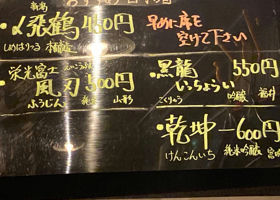 新潟
〆張鶴 450円
しめはりつる 本醸造
早めに席を
空けて下さい
栄光富士 えいこうふじ
風刃 500円
ふうじん 純米 山形
・黒龍 550円
いちょうい
こくりゅう 吟醸 福井
・乾坤一 600円
けんこんいち 純米吟醸 宮城